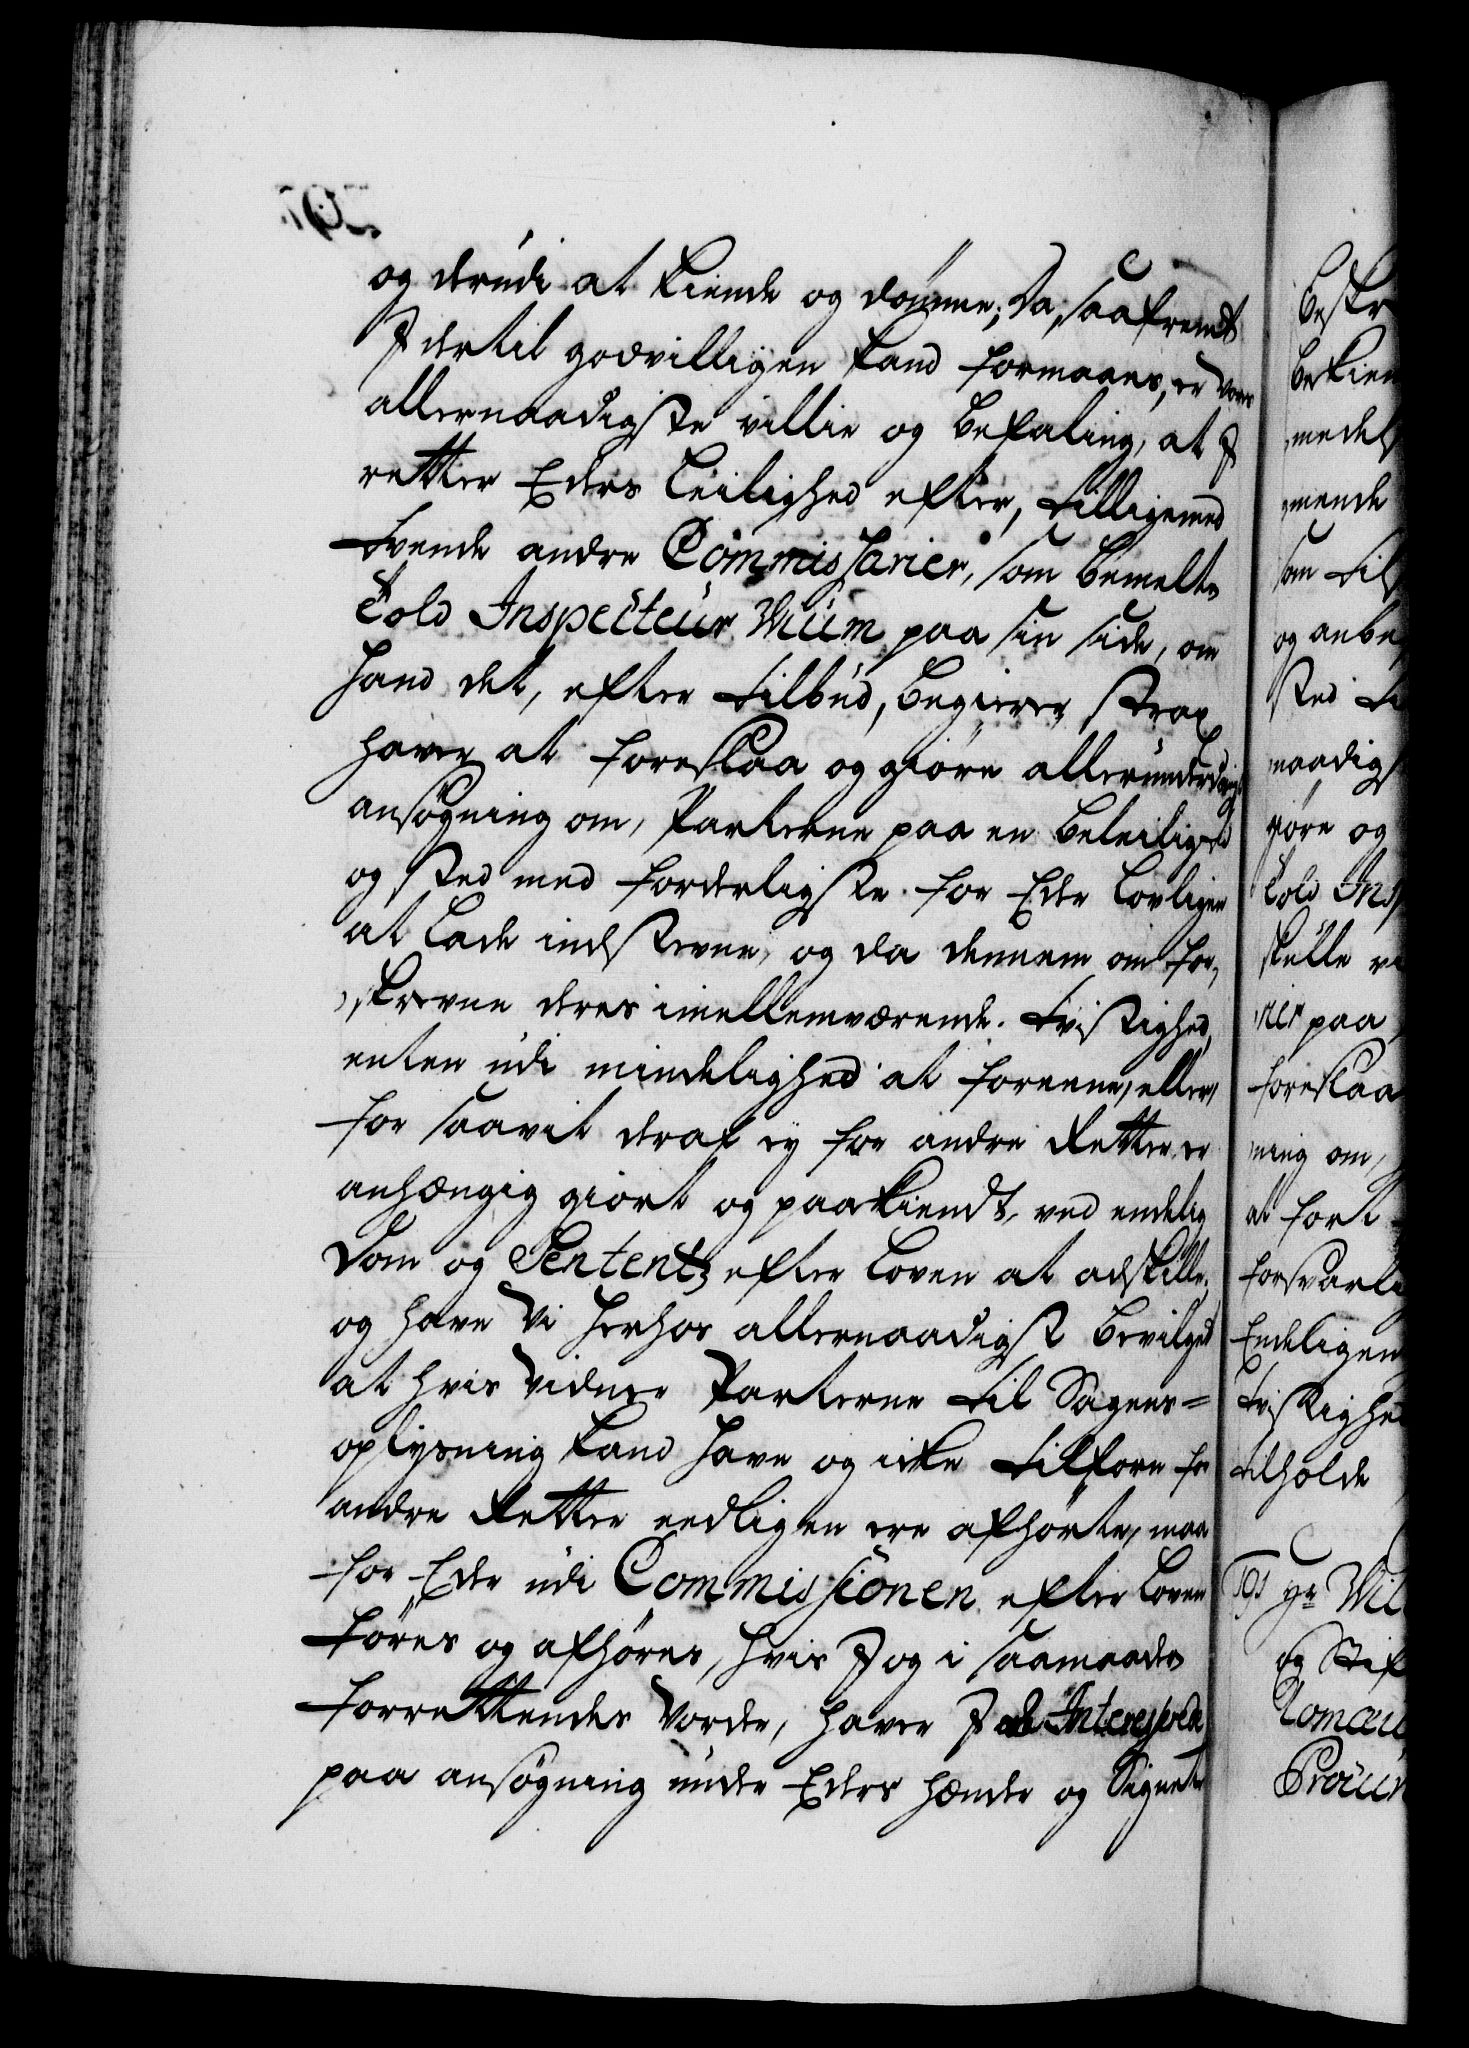 og derudi at kiende og dømme; Da, saafremt
I dertil godvilligen kand formaaes, er vores
allernaadigste villie og befaling, at I
retter Eders leilighed efter, tilligemed
tvende andre Commissarier, som bemelte
Told Inspecteur Muum paa sin side, om
hand det, efter tilbud, begierer, strax
haver at foreslaa og giøre allerunderdanigst
ansøgning om, Parterne paa en beleilig tid
og sted med forderligste for Eder lovligen
at lade indstevne, og da dennem om for,,
,,skrevne deres imellemværende tvistighed,
enten udi mindelighed at foreene, eller,
for saavit deraf ey for andre Retter er
anhængig giort og paakiendt, ved endelig
Dom og Sententz efter loven at adskille,
og have Vi herhos allernaadigst bevilget
at hvis vidner Parterne til Sagens=
oplysning kand have og icke tilforn for
andre Retter eedligen ere afhørte, maa
for Eder udi Commissionen efter loven
føres og afhøres, hvis I og i saamaade
forrettendes vorder, haver I de Interesserede
paa ansøgning under Eders hænder og Signeter
beskr
bekien
medels
mende
som til
og anbe
sted
naadigs
giøre og
Told Ins
skulle
rier paa
foreslaa
ning om,
at fort
forsvarli
Endeligen
tvistighe
tilholde
og Stif